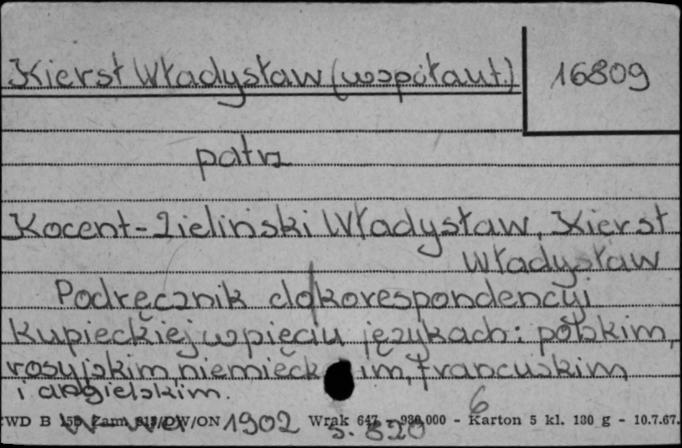 Kierst Władysław (współaut.)
16809
patrz
Kocent-Zieliński Władysław, Kierst
Władysław
Podręcznik do korespondencyi
kupieckiej w pięciu językach: polskim,
rosyjskim, niemieckim, francuskim
i angielskim.
WD B Zam. ON 1902 Wrak 647 - 930.000 - Karton 5 kl. 130 g - 10.7.67.
6
s. 820